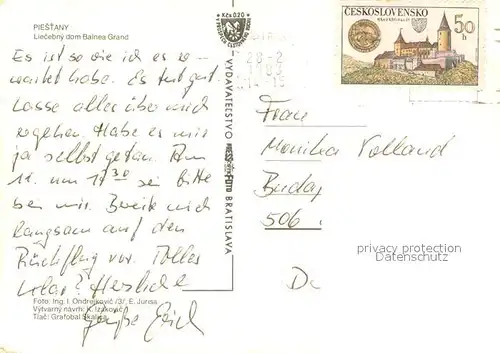 PIEŠŤANY
Liečebný dom Balnea Grand
Es ist so wie ich es er-
wartet habe. Es tut gut.
Lasse alles über mich
ergehen. Habe es mir
ja selbst getan. Am
um 17 30 sei bitte
bei mir. Bereite mich
langsam auf den
Rückflug vor. Tolles
Herzliche
Grüße Erich
Foto: Ing. I. Ondrejkovič /3/, E. Juriss
Výtvarný návrh: K. Izakovič
Tlač: Grafobal Skalica
VYDAVATEĽSTVO PRESSFOTO BRATISLAVA
Kčs 0,20
ČESKOSLOVENSKO
50 h
28-2
Frau
Monika Volland
Buday
506.
privacy protection
www.AnsichtskartenVersand.com